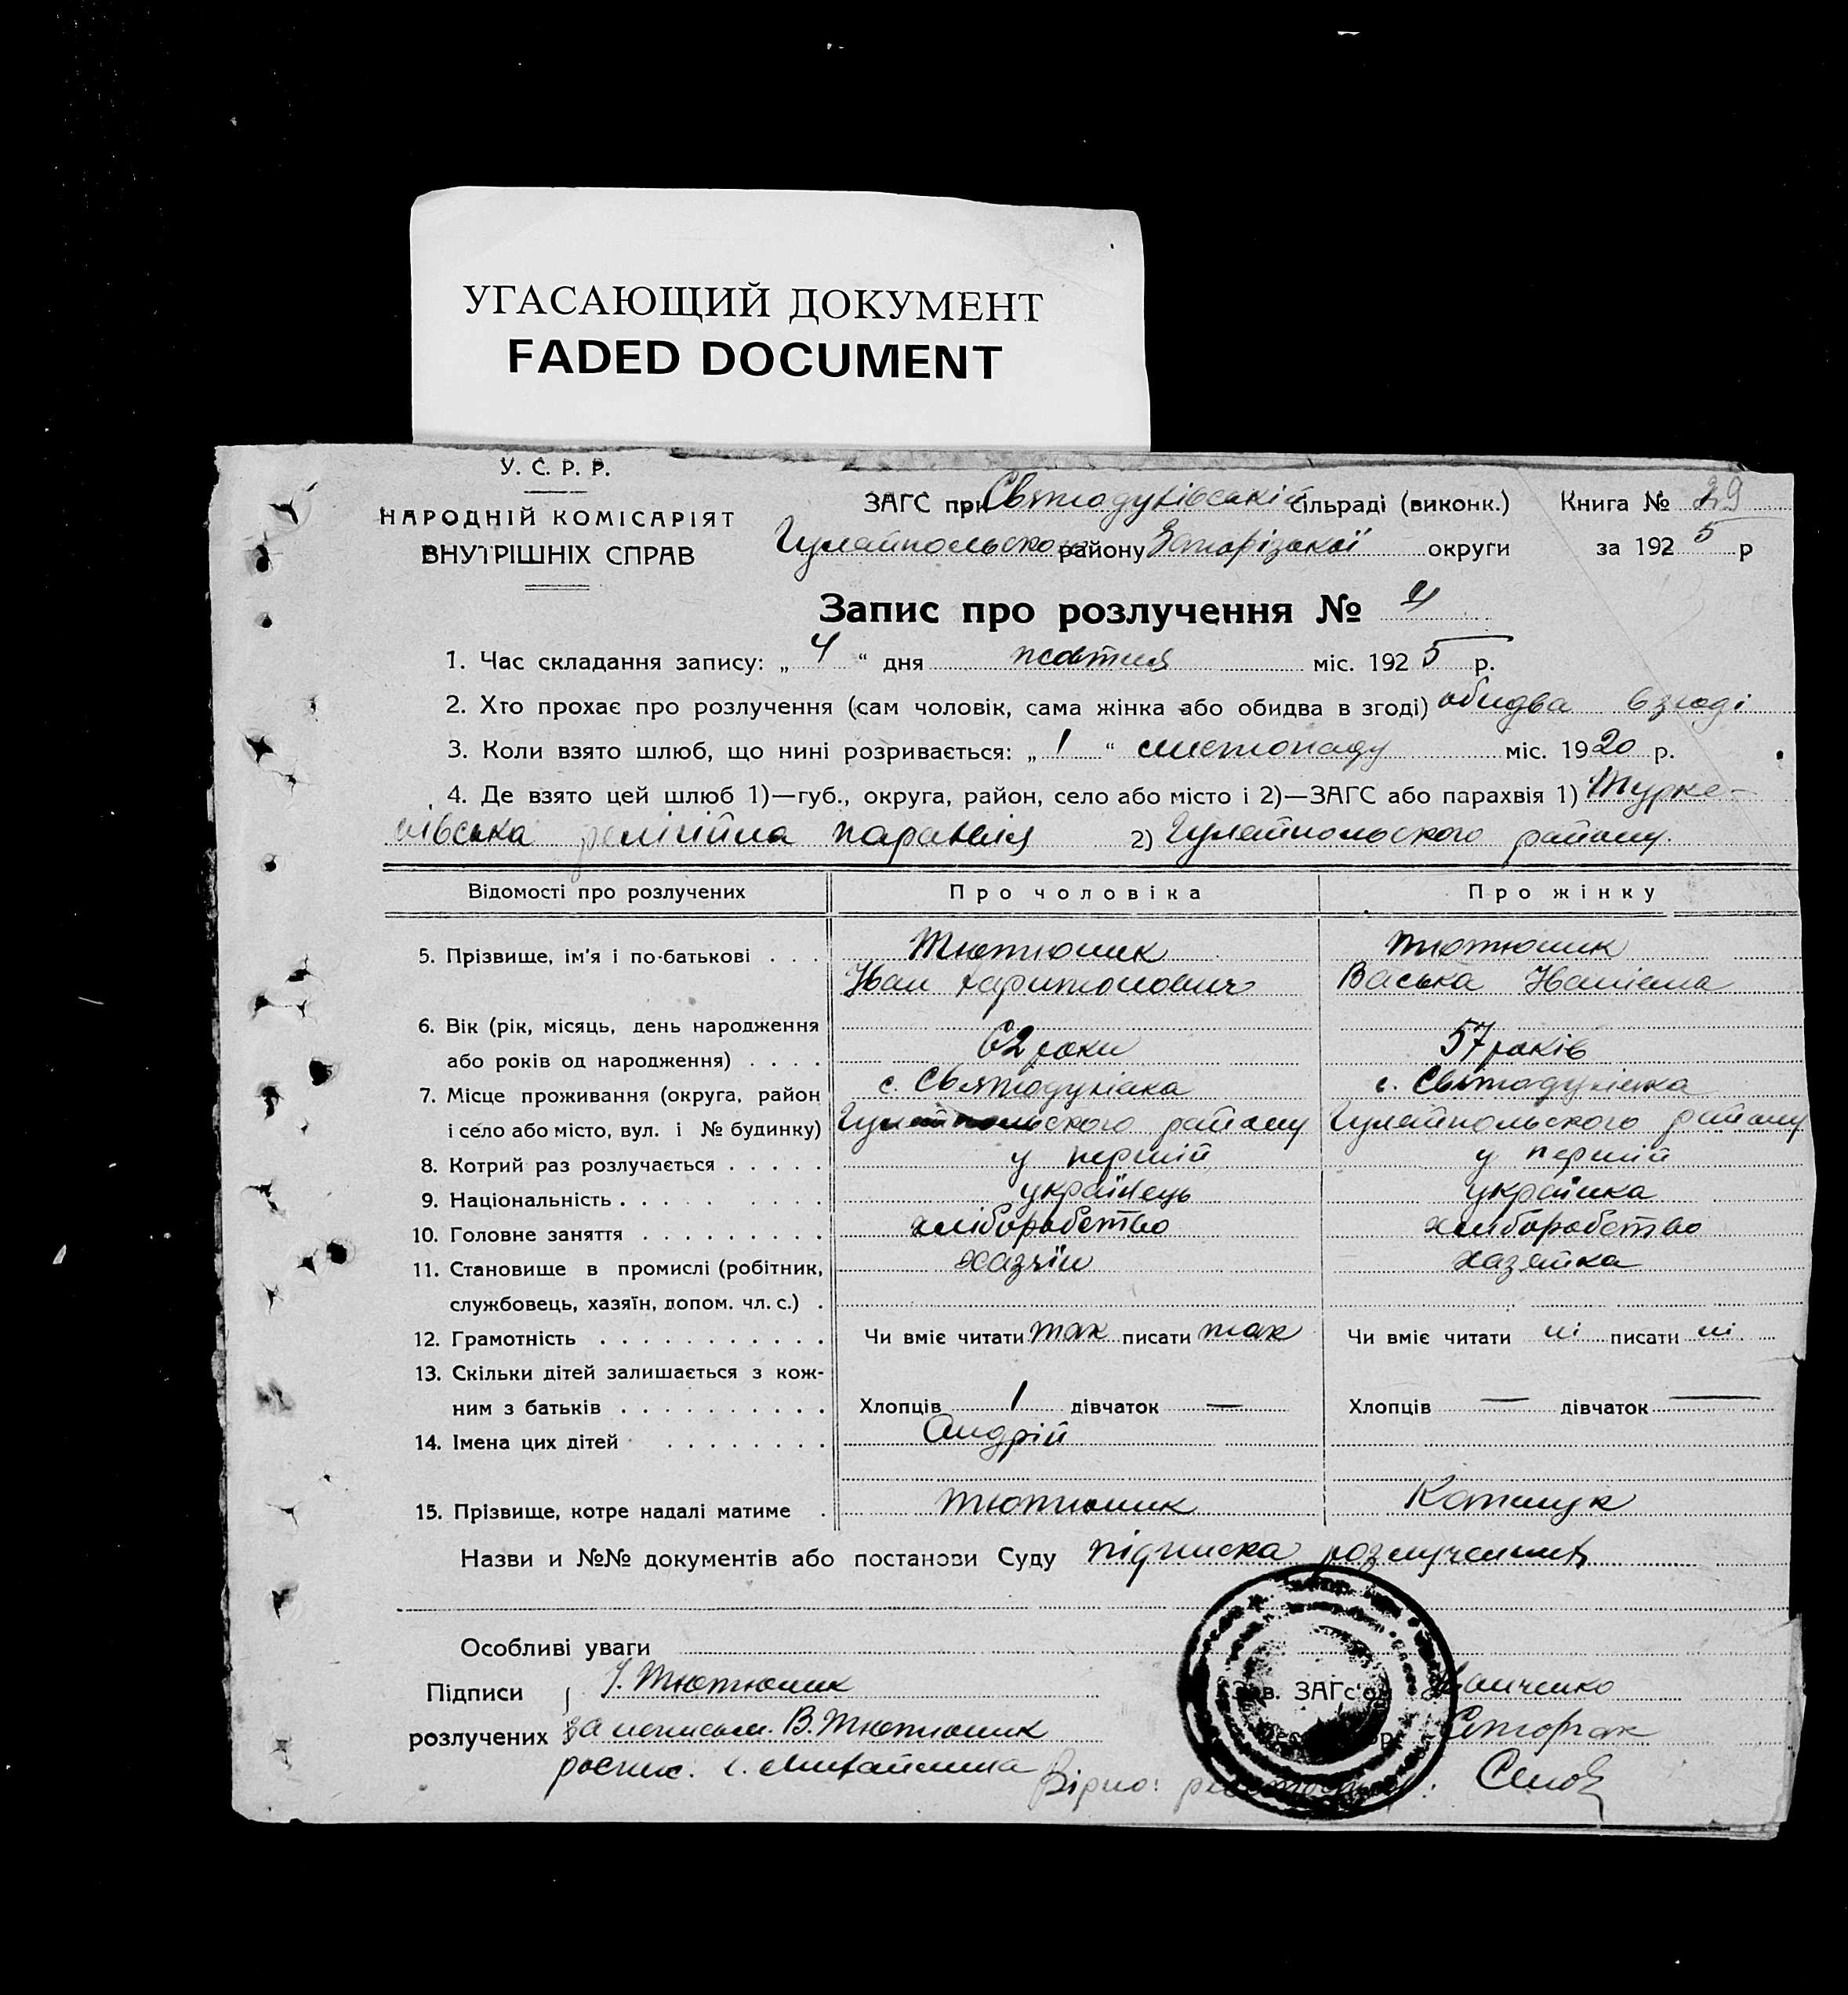 УГАСАЮЩИЙ ДОКУМЕНТ
FADED DOCUMENT
У. С. Р. Р.
НАРОДНІЙ КОМІСАРІЯТ
ВНУТРІШНІХ СПРАВ
ЗАГС при Святодухівській сільраді (виконк.) Книга № 29
Гуляйпольського району Запорізької округи за 1925 р
Запис про розлучення № 4
1. Час складання запису: „ 4 “ дня жовтня міс. 1925 р.
2. Хто прохає про розлучення (сам чоловік, сама жінка або обидва в згоді) обидва взгоді
3. Коли взято шлюб, що нині розривається: „ 1 “ листопаду міс. 1920 р.
4. Де взято цей шлюб 1)—губ., округа, район, село або місто і 2)—ЗАГС або парахвія 1) Турке-
нівська релігійна парахвія 2) Гуляйпольского району.
Відомості про розлучених Про чоловіка Про жінку
5. Прізвище, ім'я і по-батькові . . . Тютюник Тютюник
Іван Харитонович Васька Іванівна
6. Вік (рік, місяць, день народження
або років од народження) . . . . 62 роки 57 років
7. Місце проживання (округа, район с. Святодухівка с. Святодухівка
і село або місто, вул. і № будинку) Гуляйпольского району Гуляйпольского району
8. Котрий раз розлучається . . . . . у перший у перший
9. Національність . . . . . українець українка
10. Головне заняття . . . . . . . . . хліборобство хліборобство
11. Становище в промислі (робітник, хазяїн хазяйка
службовець, хазяїн, допом. чл. с.) .
12. Грамотність . . . . . . . . . . . Чи вміє читати так писати так Чи вміє читати ні писати ні
13. Скільки дітей залишається з кож-
ним з батьків . . . . . . . . . . Хлопців 1 дівчаток — Хлопців — дівчаток —
14. Імена цих дітей . . . . . . . . Андрій
15. Прізвище, котре надалі матиме . Тютюник
Назви и №№ документів або постанови Суду підписка розлученних
Особливі уваги
Підписи І. Тютюник Зав. ЗАГс'ом
розлучених за неписьм. В. Тютюник
роспис. Вірно: